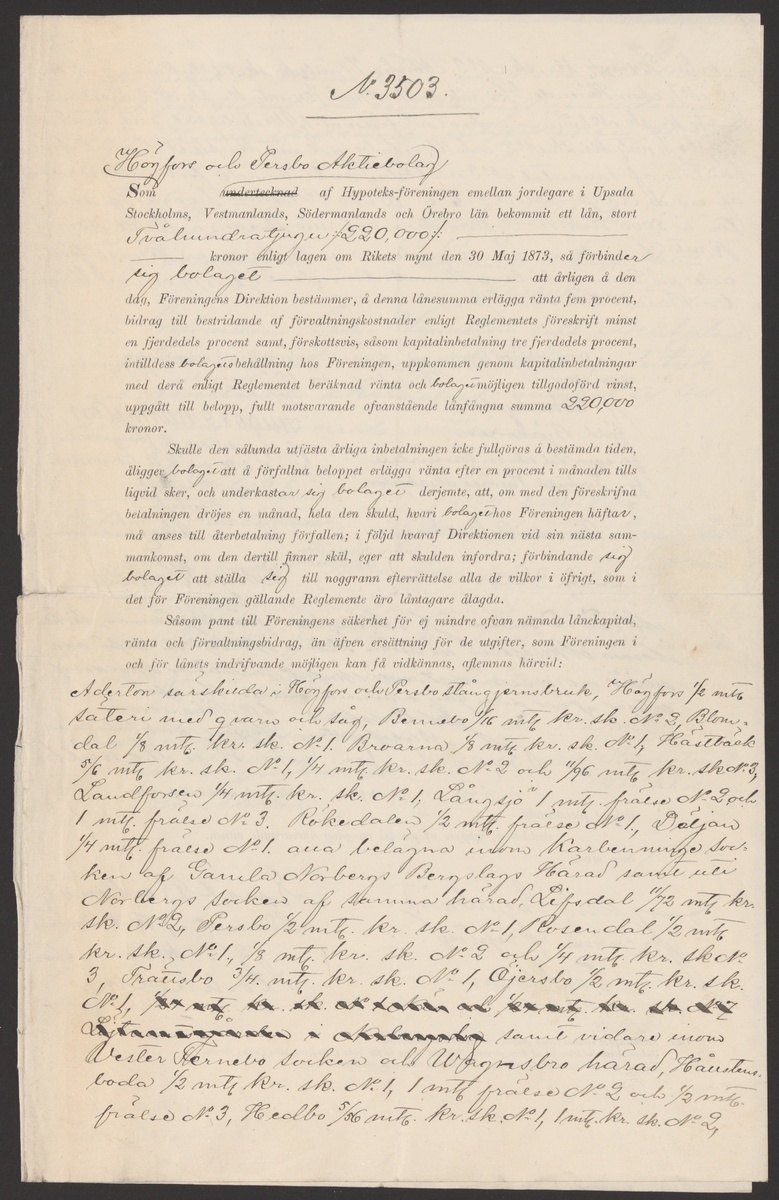 N. 3503.
Högfors och Persbo Aktiebolag
Som undertecknad af Hypoteks-föreningen emellan jordegare i Upsala
Stockholms, Vestmanlands, Södermanlands och Örebro län bekommit ett lån, stort
Tvåhundratjugo /:220,000:/
kronor enligt lagen om Rikets mynt den 30 Maj 1873, så förbinder
sig bolaget att årligen å den
dag, Föreningens Direktion bestämmer, å denna lånesumma erlägga ränta fem procent,
bidrag till bestridande af förvaltningskostnader enligt Reglementets föreskrift minst
en fjerdedels procent samt, förskottsvis, såsom kapitalinbetalning tre fjerdedels procent,
intilldess bolagets behållning hos Föreningen, uppkommen genom kapitalinbetalningar
med derå enligt Reglementet beräknad ränta och bolaget möjligen tillgodoförd vinst,
uppgått till belopp, fullt motsvarande ofvanstående lånfångna summa 220,000
kronor.
Skulle den sålunda utfästa årliga inbetalningen icke fullgöras å bestämda tiden,
åligger bolaget att å förfallna beloppet erlägga ränta efter en procent i månaden tills
liqvid sker, och underkastar sig bolaget derjemte, att, om med den föreskrifna
betalningen dröjes en månad, hela den skuld, hvari bolaget hos Föreningen häftar,
må anses till återbetalning förfallen; i följd hvaraf Direktionen vid sin nästa sam-
mankomst, om den dertill finner skäl, eger att skulden infordra; förbindande sig
bolaget att ställa sig till noggrann efterrättelse alla de vilkor i öfrigt, som i
det för Föreningen gällande Reglemente äro låntagare ålagda.
Såsom pant till Föreningens säkerhet för ej mindre ofvan nämnda lånekapital,
ränta och förvaltningsbidrag, än äfven ersättning för de utgifter, som Föreningen i
och för lånets indrifvande möjligen kan få vidkännas, aflemnas härvid:
Aderton särskilda i Högfors och Persbo stångjernsbruk, Högfors 1/2 mtl
säteri med qvarn och såg, Bennebo 1/16 mtl kr. sk. No 2, Blom-
dal 1/8 mtl kr. sk. No 1. Broarna 1/8 mtl kr. sk. No 1, Hästbäck
5/6 mtl kr. sk. No 1, 1/4 mtl kr. sk. No 2 och 11/96 mtl kr. sk No 3,
Landforsen 1/4 mtl kr. sk. No 1, Långsjö 1 mtl frälse No 2 och
1 mtl frälse No 3. Rökedalen 1/2 mtl frälse No 1, Däljan
1/4 mtl frälse No 1. alla belägna inom Karbenninge soc-
ken af Gamla Norbergs Bergslags Härad samt uti
Norbergs socken af samma härad, Lifsdal 11/72 mtl kr.
sk. No 2, Persbo 1/2 mtl kr. sk. No 1, Rosendal 1/2 mtl
kr. sk. No 1, 1/8 mtl kr. sk. No 2 och 1/4 mtl kr. sk No
3, Tränsbo 3/4 mtl kr. sk. No 1, Öjersbo 1/2 mtl kr. sk.
No 1,
samt vidare inom
Vester Fernebo socken och Wagnsbro härad, Hånstens-
boda 1/2 mtl kr. sk. No 1, 1 mtl frälse No 2 och 1/2 mtl
frälse No 3, Hedbo 5/56 mtl kr. sk. No 1, 1 mtl. kr. sk. No 2,